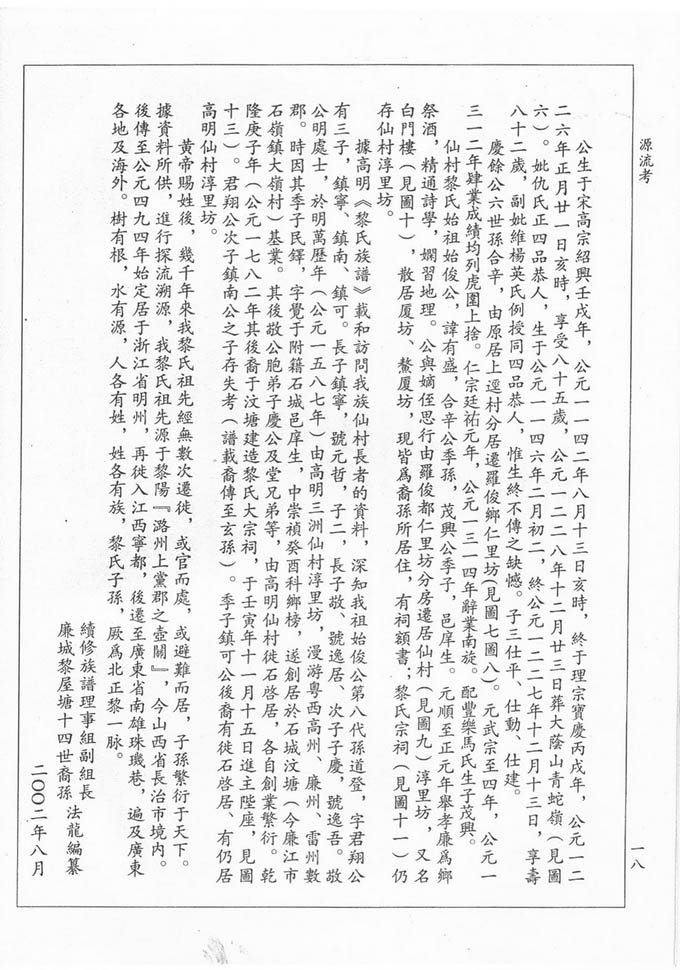 源流考
一八
公生于宋高宗紹興壬戌年，公元一一四二年八月十三日亥時，終于理宗寶慶丙戌年，公元一二
二六年正月廿一日亥時，享受八十五歲，公元一二二八年十二月廿三日葬大蔭山青蛇嶺（見圖
六）。妣仇氏正四品恭人，生于公元一一四六年二月初二，終公元一二二七年十二月十三日，享壽
八十二歲，副妣維楊英氏例授同四品恭人，惟生終不傳之缺憾。子三仕平、仕動、仕建。
慶餘公六世孫合辛，由原居上逕村分居遷羅俊鄉仁里坊（見圖七圖八）。元武宗至四年，公元一
三一二年肄業成績均列虎圍上捨。仁宗廷祐元年，公元一三一四年辭業南旋。配豐樂馬氏生子茂興。
仙村黎氏始祖始俊公，諱有盛，合辛公季孫，茂興公季子，邑庠生。元順至正元年舉孝廉爲鄉
祭酒，精通詩學，嫻習地理。公與嫡侄思行由羅俊都仁里坊分房遷居仙村（見圖九）淳里坊，又名
白門樓（見圖十），散居厦坊、鰲厦坊，現皆爲裔孫所居住，有祠額書；黎氏宗祠（見圖十一）仍
存仙村淳里坊。
據高明《黎氏族譜》載和訪問我族仙村長者的資料，深知我祖始俊公第八代孫道登，字君翔公
有三子，鎮寧、鎮南、鎮可。長子鎮寧，號元哲，子二，長子敬、號逸居、次子子慶，號逸吾。敬
公明處士，於明萬歷年（公元一五八七年）由高明三洲仙村淳里坊，漫游粤西高州、廉州、雷州數
郡。時因其季子民鐸，字覺于附籍石城邑庠生，中崇禎癸酉科鄉榜，遂創居於石城汶塘（今廉江市
石嶺鎮大嶺村）基業。其後敬公胞弟子慶公及堂兄弟等，由高明仙村徙石啓居，各自創業繁衍。乾
隆庚子年（公元一七八二年其後裔于汶塘建造黎氏大宗祠，于壬寅年十一月十五日進主陞座，見圖
十三）。君翔公次子鎮南公之子存失考（譜載裔傳至玄孫）。季子鎮可公後裔有徙石啓居、有仍居
高明仙村淳里坊。
黃帝賜姓後，幾千年來我黎氏祖先經無數次遷徙，或官而處，或避難而居，子孫繁衍于天下。
據資料所供，進行探流溯源，我黎氏祖先源于黎陽『潞州上黨郡之壺關』，今山西省長治市境内。
後傳至公元四九四年始定居于浙江省明州，再徙入江西寧都，後遷至廣東省南雄珠璣巷，遍及廣東
各地及海外。樹有根，水有源，人各有姓，姓各有族，黎氏子孫，厥爲北正黎一脉。
續修族譜理事組副組長
廉城黎屋塘十四世裔孫 法龍編纂
二〇〇二年八月